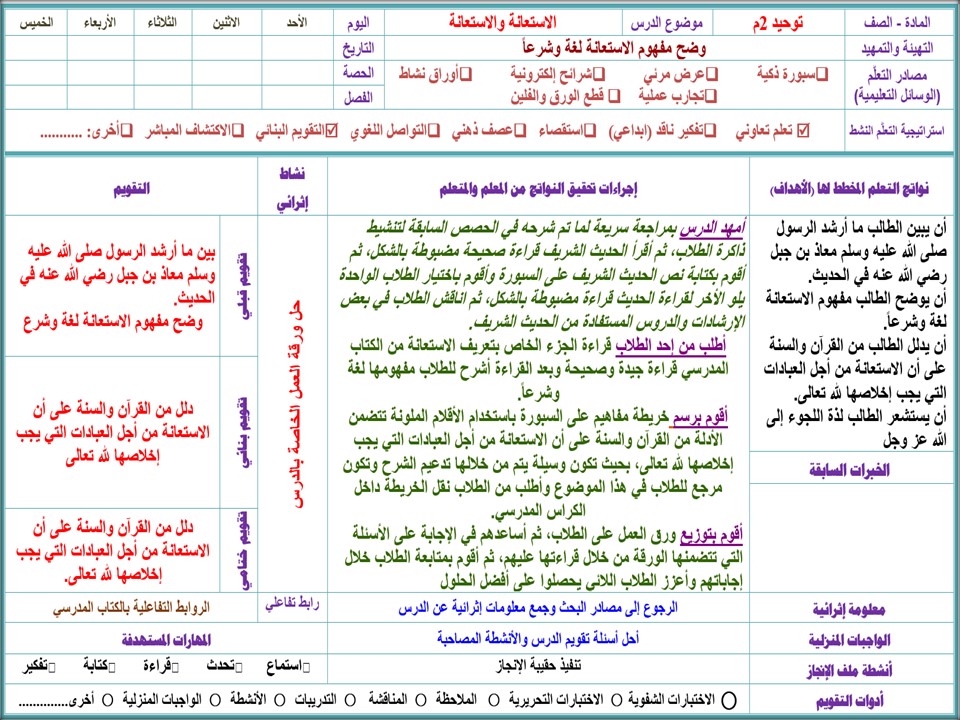 المادة - الصف	توحيد 2م	موضوع الدرس	الاستعانة والاستعانة	اليوم	الأحد	الاثنين	الثلاثاء	الأربعاء	الخميس
التهيئة والتمهيد	وضح مفهوم الاستعانة لغة وشرعاً	التاريخ
مصادر التعلّم (الوسائل التعليمية)	❑سبورة ذكية ❑عرض مرئي ❑شرائح إلكترونية ❑أوراق نشاط	الحصة
❑تجارب عملية ❑ قطع الورق والفلين	الفصل
استراتيجية التعلّم النشط	☑ تعلم تعاوني ❑تفكير ناقد (ابداعي) ❑استقصاء ❑عصف ذهني ❑التواصل اللغوي ☑التقويم البنائي ❑الاكتشاف المباشر ❑أخرى: ...........
نواتج التعلم المخطط لها (الأهداف)	إجراءات تحقيق النواتج من المعلم والمتعلم	نشاط إثرائي	التقويم
أن يبين الطالب ما أرشد الرسول
صلى الله عليه وسلم معاذ بن جبل
رضي الله عنه في الحديث.
أن يوضح الطالب مفهوم الاستعانة
لغة وشرعاً.
أن يدلل الطالب من القرآن والسنة
على أن الاستعانة من أجل العبادات
التي يجب إخلاصها لله تعالى.
أن يستشعر الطالب لذة اللجوء إلى
الله عز وجل
الخبرات السابقة
أمهد الدرس بمراجعة سريعة لما تم شرحه في الحصص السابقة لتنشيط
ذاكرة الطلاب، ثم أقرأ الحديث الشريف قراءة صحيحة مضبوطة بالشكل، ثم
أقوم بكتابة نص الحديث الشريف على السبورة وأقوم باختيار الطلاب الواحدة
يلو الأخر لقراءة الحديث قراءة مضبوطة بالشكل، ثم اناقش الطلاب في بعض
الإرشادات والدروس المستفادة من الحديث الشريف.
أطلب من إحد الطلاب قراءة الجزء الخاص بتعريف الاستعانة من الكتاب
المدرسي قراءة جيدة وصحيحة وبعد القراءة أشرح للطلاب مفهومها لغة
وشرعاً.
أقوم برسم خريطة مفاهيم على السبورة باستخدام الأقلام الملونة تتضمن
الأدلة من القرآن والسنة على أن الاستعانة من أجل العبادات التي يجب
إخلاصها لله تعالى، بحيث تكون وسيلة يتم من خلالها تدعيم الشرح وتكون
مرجع للطلاب في هذا الموضوع وأطلب من الطلاب نقل الخريطة داخل
الكراس المدرسي.
أقوم بتوزيع ورق العمل على الطلاب، ثم أساعدهم في الإجابة على الأسئلة
التي تتضمنها الورقة من خلال قراءتها عليهم، ثم أقوم بمتابعة الطلاب خلال
إجاباتهم وأعزز الطلاب اللائي يحصلوا على أفضل الحلول
حل ورقة العمل الخاصة بالدرس
تقويم قبلي
بين ما أرشد الرسول صلى الله عليه
وسلم معاذ بن جبل رضي الله عنه في
الحديث.
وضح مفهوم الاستعانة لغة وشرع
تقويم بنائي
دلل من القرآن والسنة على أن
الاستعانة من أجل العبادات التي يجب
إخلاصها لله تعالى
تقويم ختامي
دلل من القرآن والسنة على أن
الاستعانة من أجل العبادات التي يجب
إخلاصها لله تعالى.
معلومة إثرائية	الرجوع إلى مصادر البحث وجمع معلومات إثرائية عن الدرس	رابط تفاعلي	الروابط التفاعلية بالكتاب المدرسي
الواجبات المنزلية	أحل أسئلة تقويم الدرس والأنشطة المصاحبة	المهارات المستهدفة
أنشطة ملف الإنجاز	تنفيذ حقيبة الإنجاز	□استماع □تحدث □قراءة □كتابة □تفكير
أدوات التقويم	O الاختبارات الشفوية O الاختبارات التحريرية O الملاحظة O المناقشة O التدريبات O الأنشطة O الواجبات المنزلية O أخرى..............